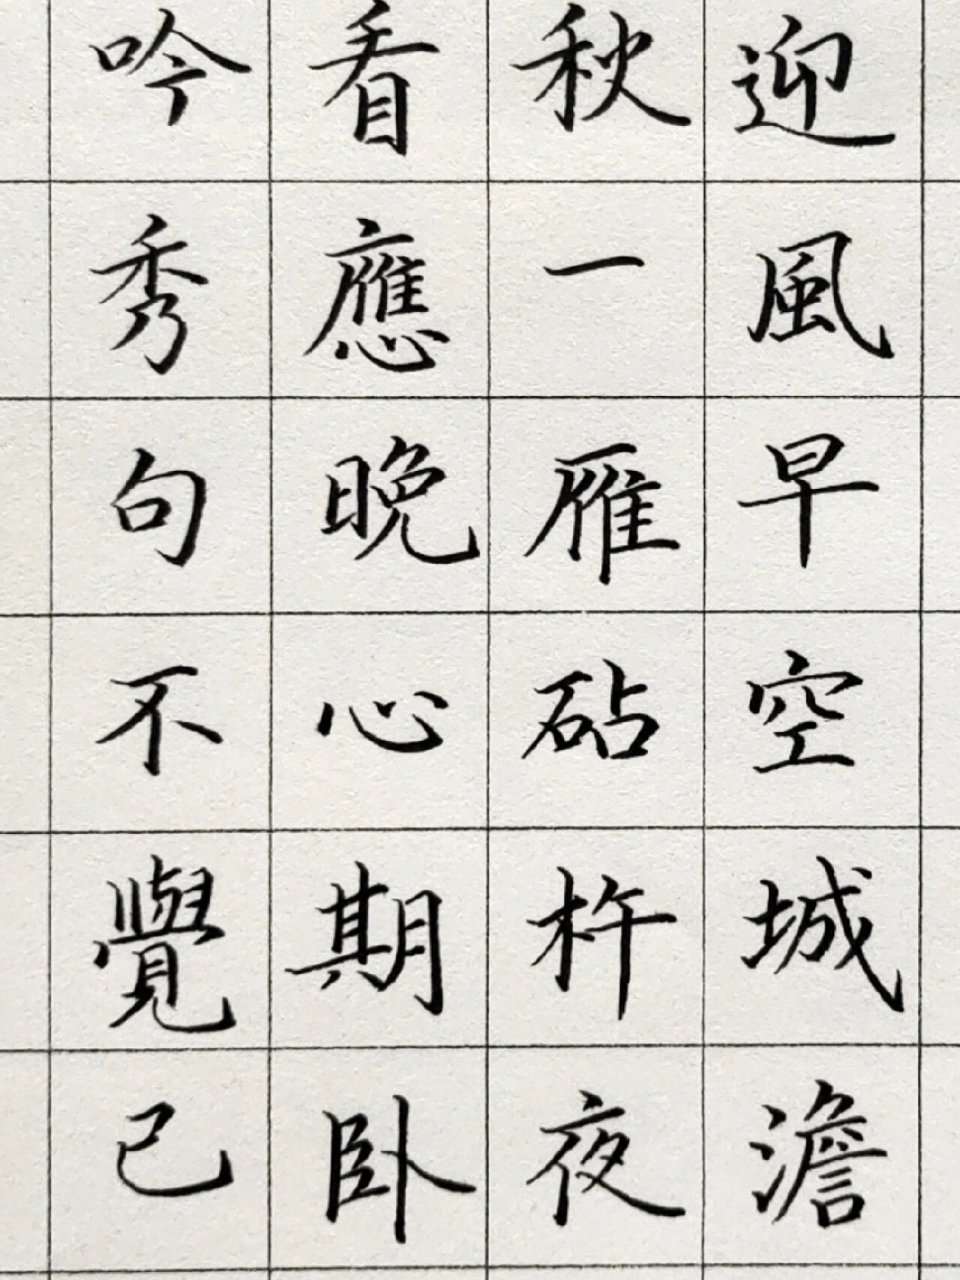 迎風早空城澹
秋一雁砧杵夜
看應晚心期卧
吟秀句不覺已